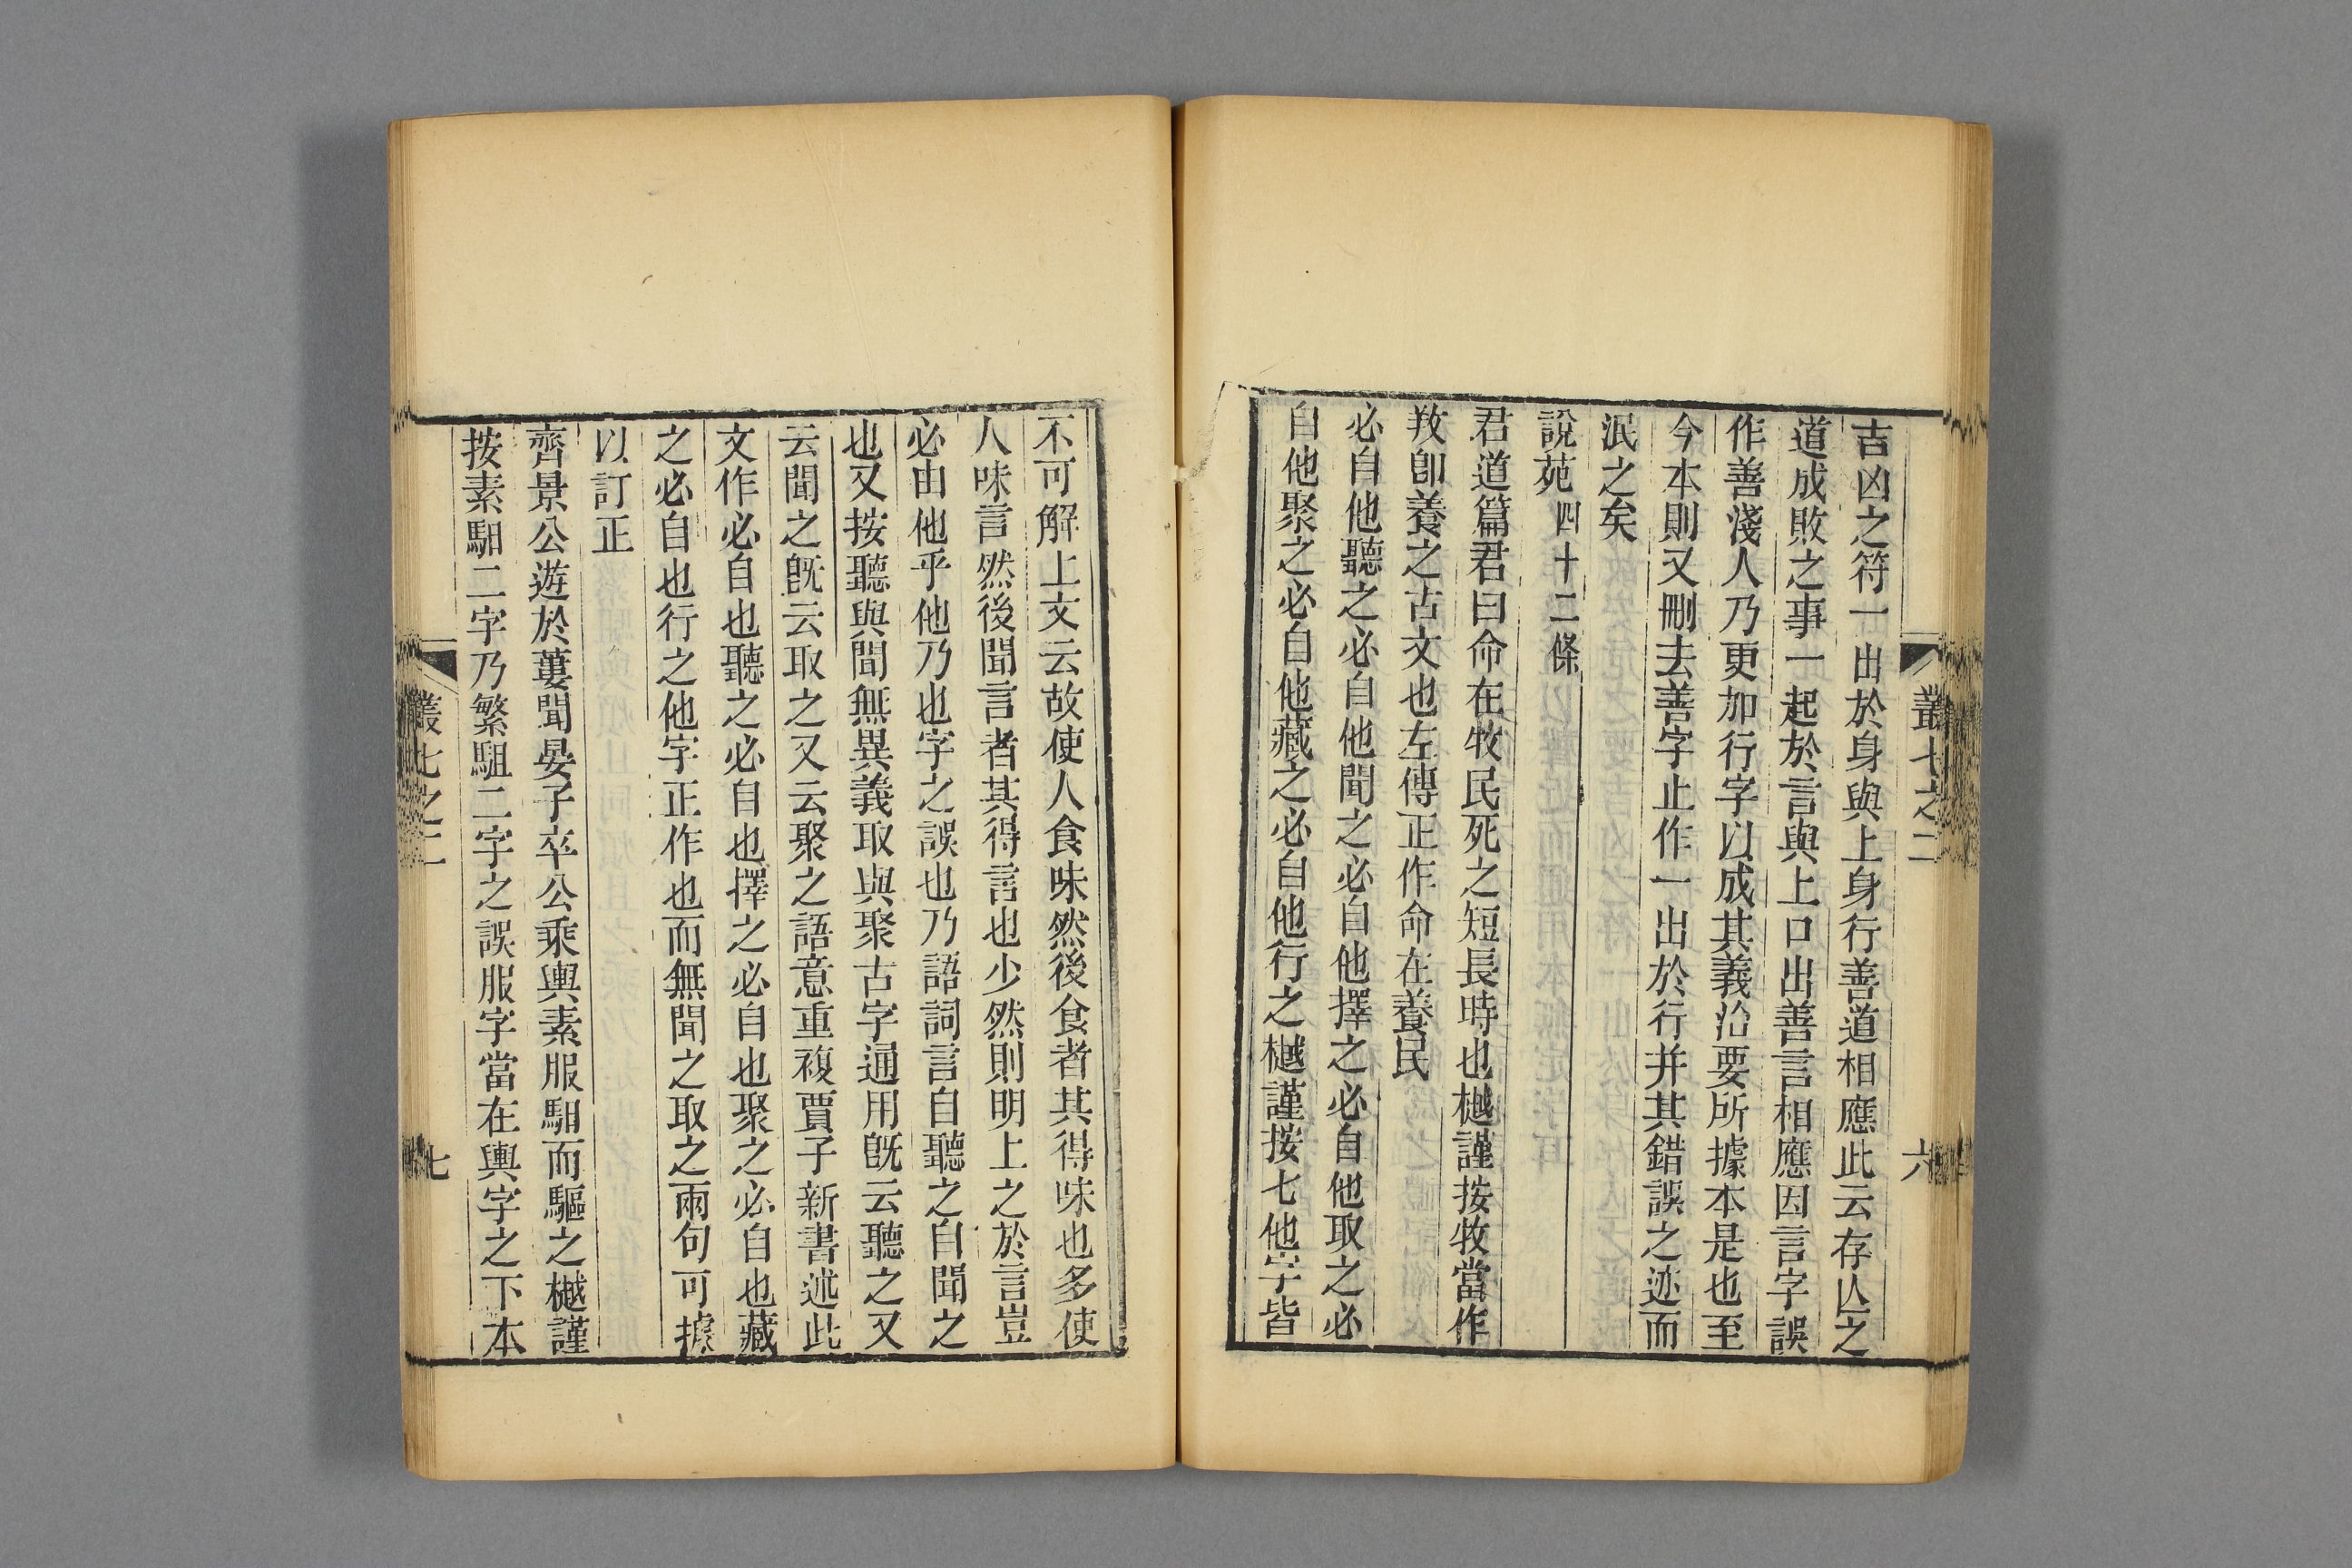 叢七之二
六
吉凶之符一出於身與上身行善道相應此云存亾之
道成敗之事一起於言與上口出善言相應因言字誤
作善淺人乃更加行字以成其義治要所據本是也至
今本則又刪去善字止作一出於行并其錯誤之迹而
泯之矣
說苑 四十二條
君道篇君曰命在牧民死之短長時也樾謹按牧當作
敎卽養之古文也左傳正作命在養民
必自他聽之必自他聞之必自他擇之必自他取之必
自他聚之必自他藏之必自他行之樾謹按七他字皆
不可解上文云故使人食味然後食者其得味也多使
人味言然後聞言者其得言也少然則明上之於言豈
必由他乎他乃也字之誤也乃語詞言自聽之自聞之
也又按聽與聞無異義取與聚古字通用旣云聽之又
云聞之旣云取之又云聚之語意重複賈子新書述此
文作必自也聽之必自也擇之必自也聚之必自也藏
之必自也行之他字正作也而無聞之取之兩句可據
以訂正
齊景公遊於蔞聞晏子卒公乘輿素服馹而驅之樾謹
按素馹二字乃繁駔二字之誤服字當在輿字之下本
叢七之二
七